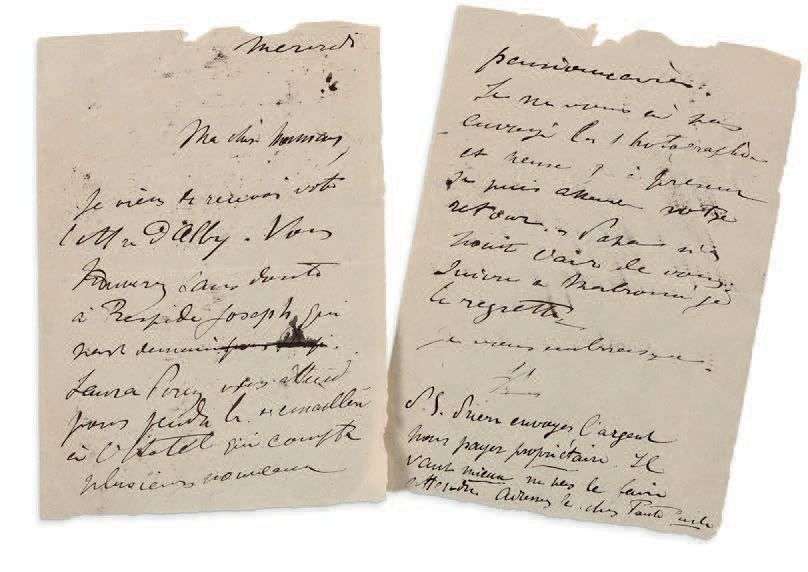 Mercredi
Ma chère maman,
Je viens de recevoir votre
lettre d'Alby. Vous
trouverez sans doute
à Respide Joseph qui
part demain
Laura vous attend
pour pendre la crémaillère
à l'hotel qui compte
plusieurs nouveaux
pensionnaires.
Je ne vous ai pas
envoyé les photographies
et à présent
je puis attendre votre
retour. Papa n'a
point l'air de vouloir
suivre à Malromé je
le regrette
je vous embrasse.
P.S. Prière envoyer l'argent
pour payer propriétaire. Il
vaut mieux ne pas le faire
attendre. Adressez le chez Tante